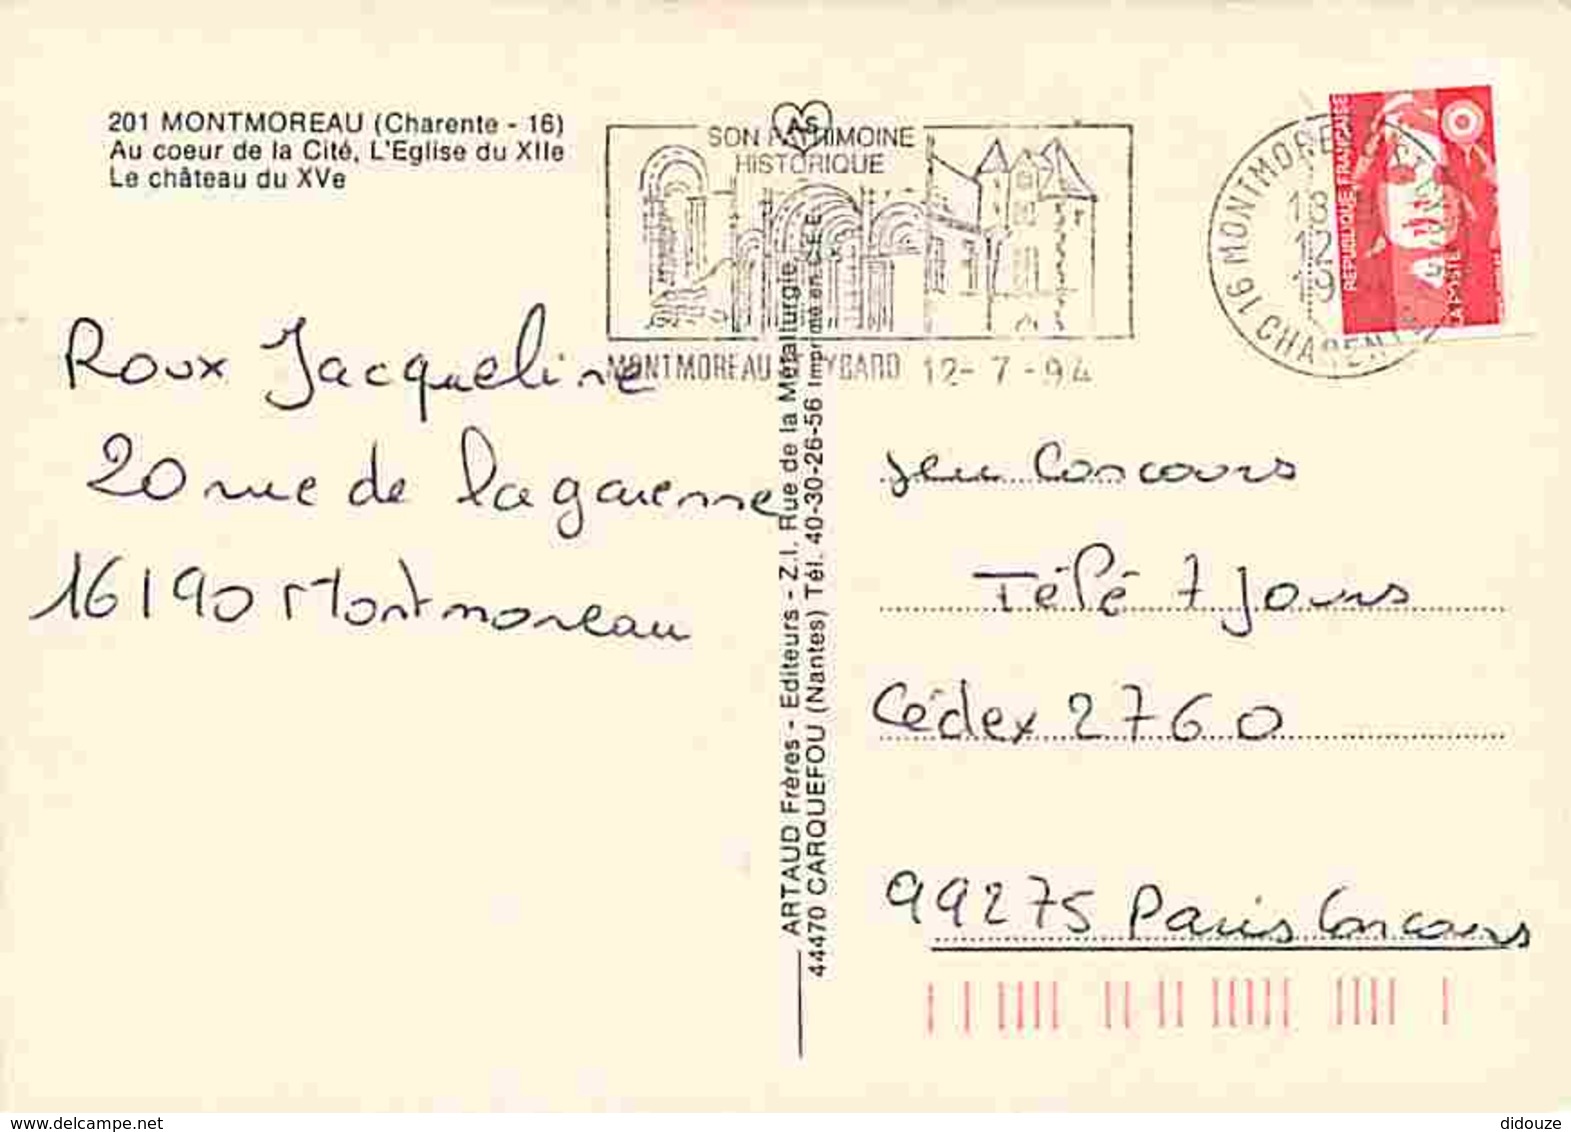 201 MONTMOREAU (Charente - 16)
Au coeur de la Cité, L'Eglise du XIIe
Le château du XVe
SON PATRIMOINE
HISTORIQUE
MONTMOREAU ST CYBARD 12-7-94
16 MONTMOREAU ST CYBARD
18
12
19
CHARENTE
REPUBLIQUE FRANÇAISE
LA POSTE
Roux Jacqueline
20 rue de la garenne
16190 Montmoreau
ARTAUD Frères - Editeurs - Z.I. Rue de la Métallurgie
44470 CARQUEFOU (Nantes) Tél. 40-30-26-56 Imprimé en C.E.E.
Jeu Concours
Télé 7 Jours
Cédex 2760
99275 Paris Concours
didouze